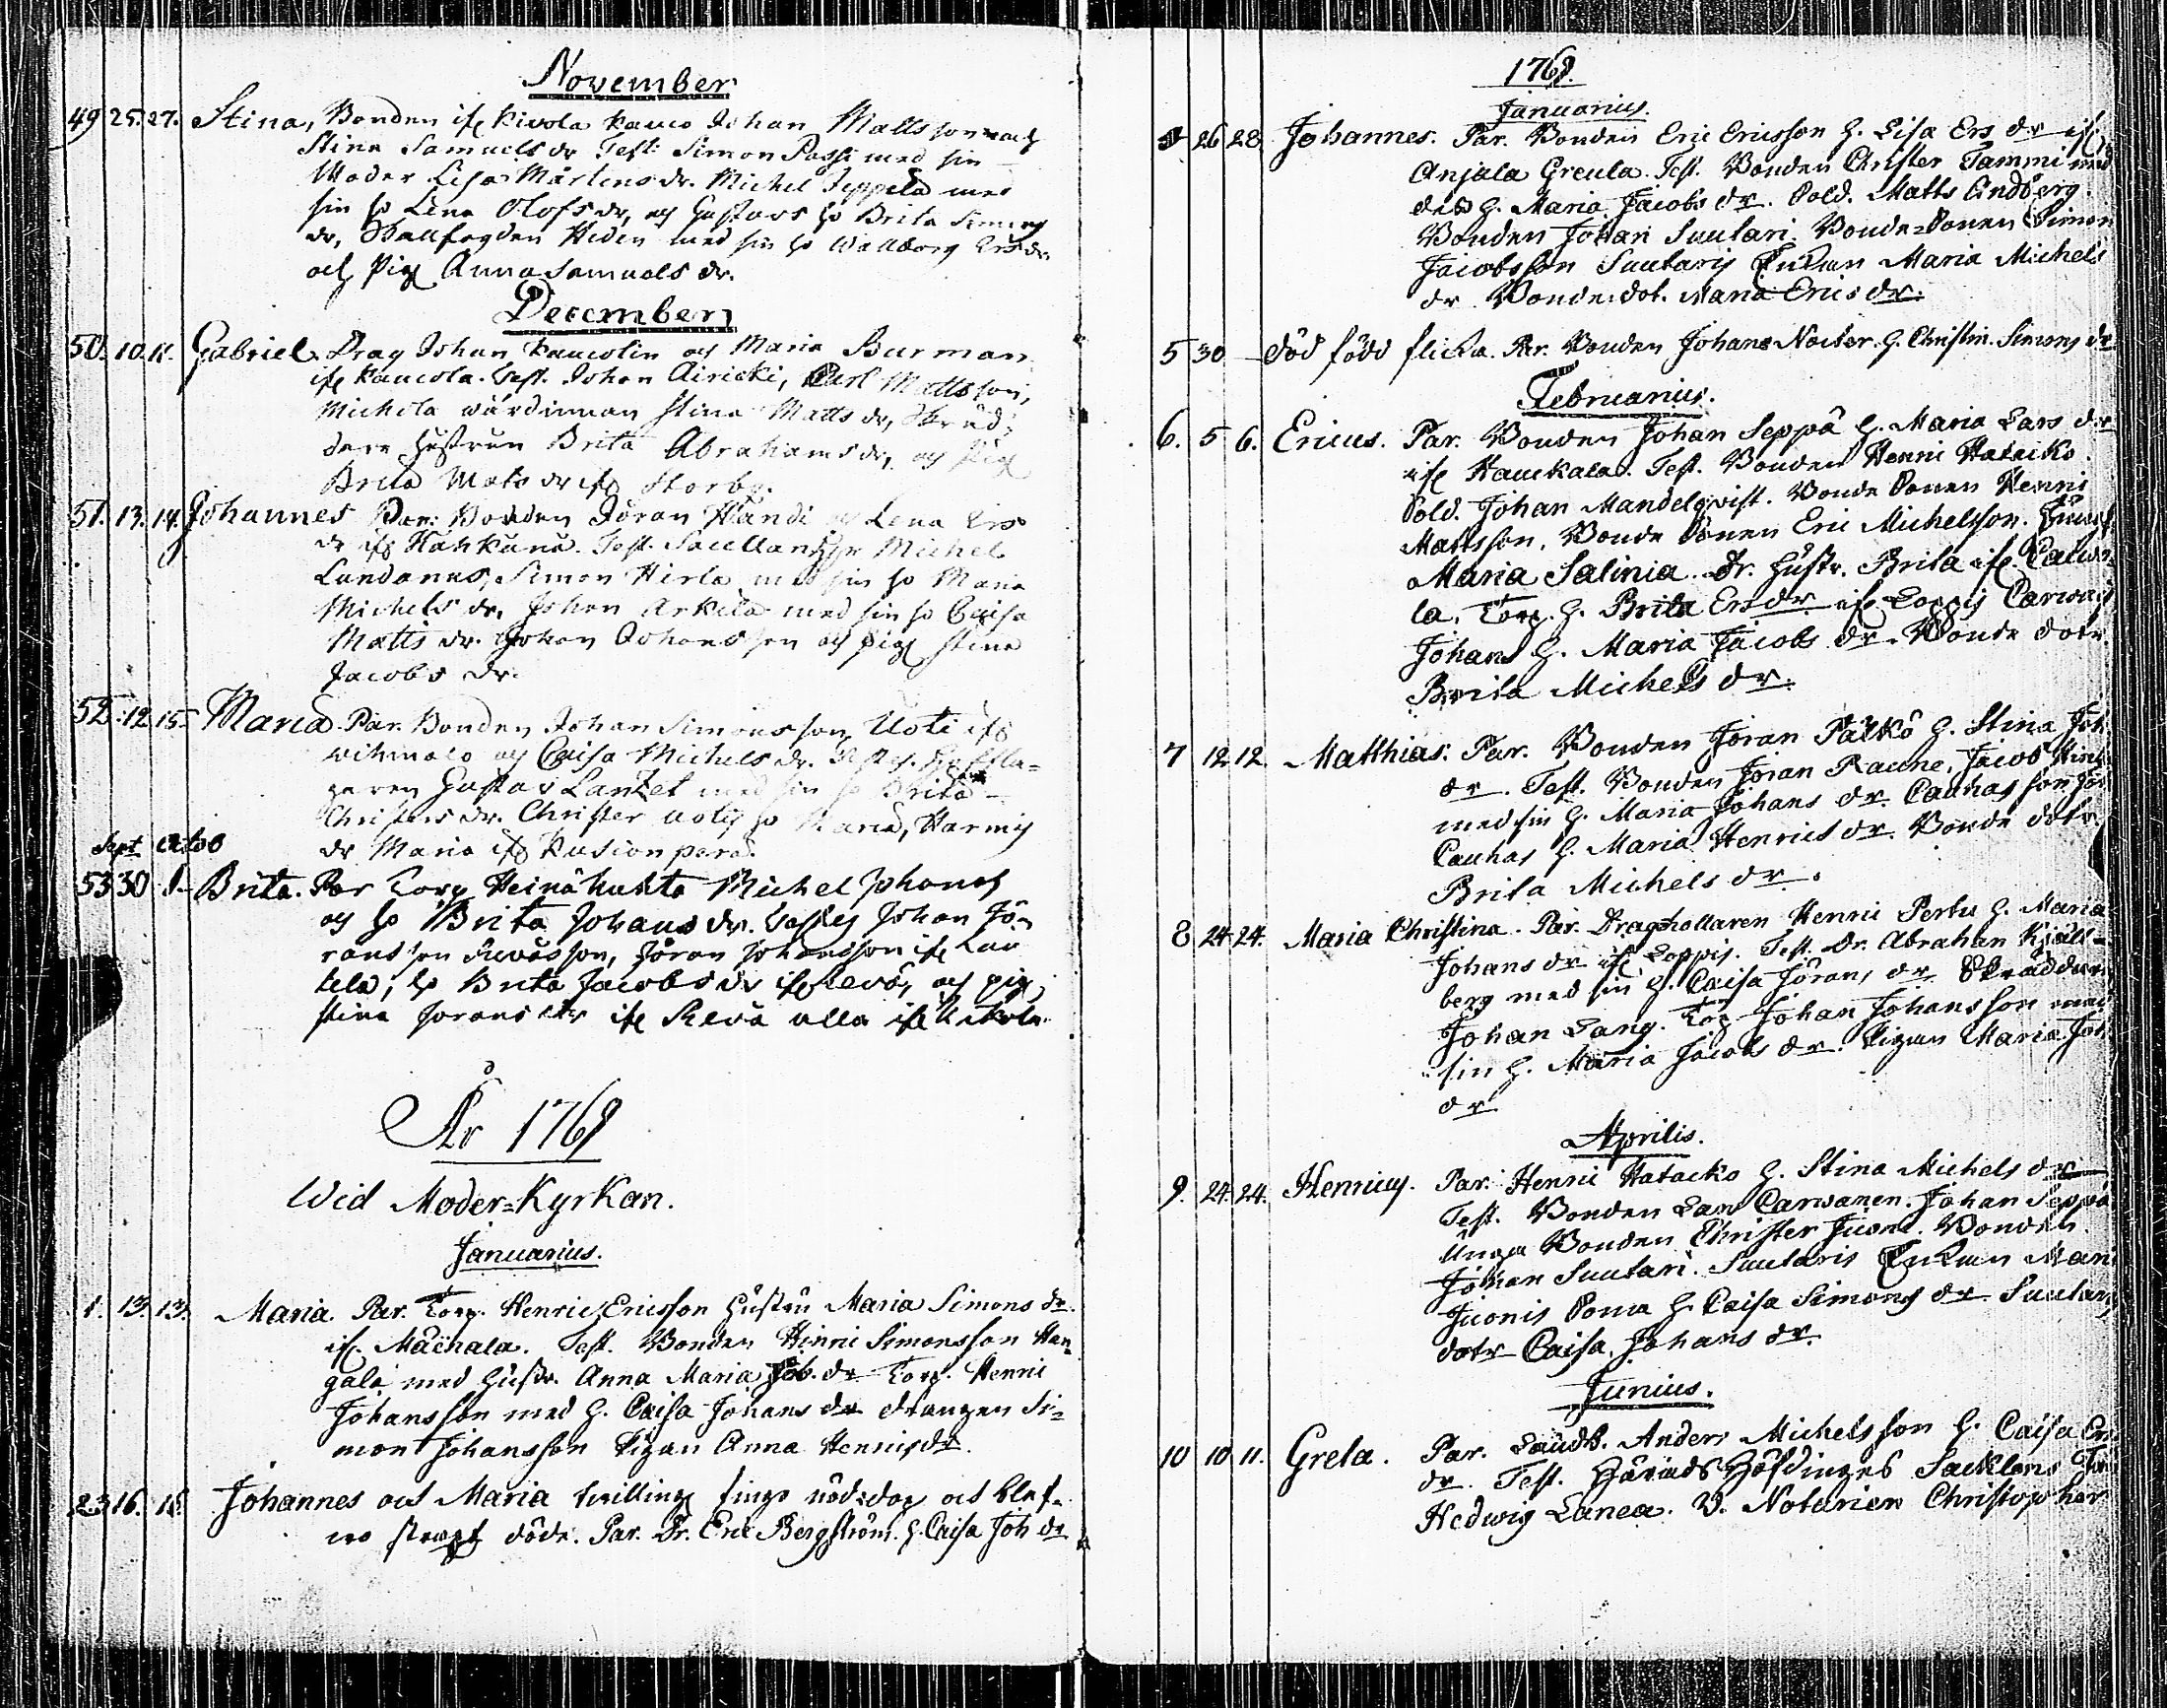 November
49 25. 27. Stina, Bonden ifr Kivola Kauco Johan Mattsson och
Stina Samuels dr Test: Simon Passi med sin
Moder Lisa Mårtens dr. Michel Seppelä med
sin h Lena Olofs dr, och Gustavs h Brita Simons
dr, med sin h Wallborg Ers dr.
och Pig Anna Samuels dr.
December
50. 10. 11. Gabriel. Drag Johan Kaucolin och Maria Burman
ifr Kaucola. Test. Johan Airicki, Carl Mattsson,
Michela wärdinnan Stina Matts dr, Skräd=
dare hustrun Brita Abrahams dr, och Pig
Brita Mats dr ifr Storby.
51. 13. 14. Johannes Par: Bonden Jöran Händi och Lena Ers
dr ifr Hahkana. Test. Michel
Lundanus, Simon Hirla med sin h Maria
Michels dr, Johan Arkila med sin h Caisa
Matts dr. Johan Johansson och Pig Stina
Jacobs dr.
52. 12. 15. Maria. Par. Bonden Johan Simonsson Uoti ifr
och Caisa Michels dr. Test.
Gustav med sin h Brita
Christers dr. Christer Uotis h Maria,
dr Maria ifr
Sept Octob
53 30 1 Brita. Par Torp Heinähuhta Michel Johans
och h Brita Johans dr. Testes Johan Jö=
ransson Revässon, Jöran Johansson ifr Lau
tela, h Brita Jacobs dr ifr Revä, och pig
Stina Jörans dr ifr Revä alla ifr
År 1768
Wid Moder=Kyrkan.
Januarius.
1. 13. 13. Maria. Par. Torp. Henric Ericsson Hustru Maria Simons dr.
ifr. Mäehala. Test. Bonden Henric Simonsson Han=
gala med Hustr. Anna Maria Joh. dr Torp. Henric
Johansson med H. Caisa Johans dr drängen Si=
mon Johansson Pigan Anna Henrics dr.
2 3 16. 16. Johannes och Maria twilling fingo nöddop och blef=
wo strapt döde. Par. Dr. Eric Bergström. H. Caisa Joh dr
1768.
Januarius.
4 26 28 Johannes. Par. Bonden Eric Ericsson H. Lisa Ers dr ifr
Anjala Greula. Test. Bonden Christer Tammi med
dess H. Maria Jacobs dr. Sold. Matts Lindberg.
Bonden Johan Suutari Bonde=Sonen Simon
Jacobsson Suutaris Enkan Maria Michels
dr Bonde: dot. Maria Erics dr.
5 30 död född flicka. Par. Bonden Johans H. Christin. Simons dr
Februarius.
6. 5 6. Ericus. Par. Bonden Johan Seppä H. Maria Lars dr
ifr Hauckala. Test. Bonden Henric Hatacko.
Sold. Johan Mandelqvist. Bonde Sonen Henric
Mattsson, Bonde Sonen Eric Michelsson.
Maria Salinia. Dr. Hustr. Brita ifr.
la. Torp. H. Brita Ers dr ifr Loppis Carwais
Johans H. Maria Jacobs dr. Bonde dotr
Brita Michels dr.
7 12 12. Matthias. Par. Bonden Jöran Pälkö H. Stina Joh
dr. Test. Bonden Jöran Raune, Jacob
med sin H. Maria Johans dr. Cauhas son
Cauhas H. Maria Henrics dr. Bonde dotr
Brita Michels dr.
8 24 24. Maria Christina. Par. Draghollaren Henric Perttu H. Maria
Johans dr ifr Loppis. Test. Dr. Abraham Kjäll=
berg med sin H. Caisa Jörans dr. Skräddaren
Johan Lang. Torp Johan Johansson med
sin H. Maria Jacobs dr. Pigan Maria Joh
dr
Aprilis.
9. 24 24. Henricus. Par. Henric Hatacko H. Stina Michels dr
Test. Bonden Lars Carwanen. Johan Seppä
Unga Bonden Christer Juoni. Bonden
Johan Suutari. Suutaris Enkan Mari
Juonis Sona H. Caisa Simons dr Suutaris
dotr Caisa. Johans dr.
Junius.
10 10 11. Greta. Par. Landb. Anders Michelsson H. Caisa Ers
dr. Test. Härads Höfdinges Sacklens Fru
Hedwig Lanea. V. Notarien Christopher